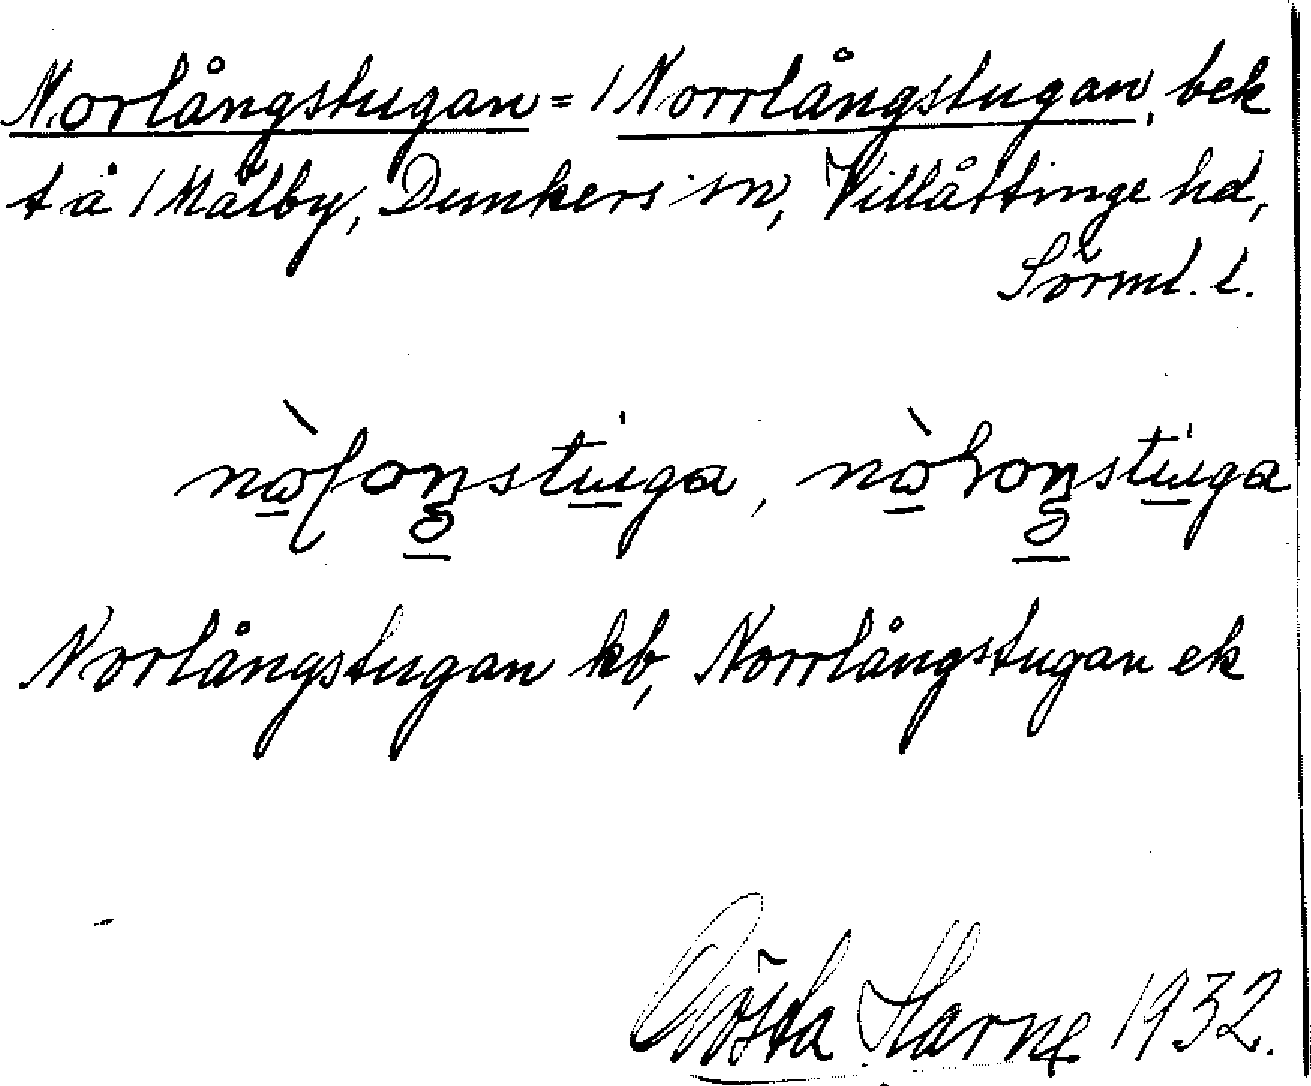 Norlångstugan = /Norrlångstugan, bek
t å /Målby, Dunkers sn, Villåttinge hd,
Sörml. l.
Norlångstugan kb, Norrlångstugan ek
Gösta Harne 1932.